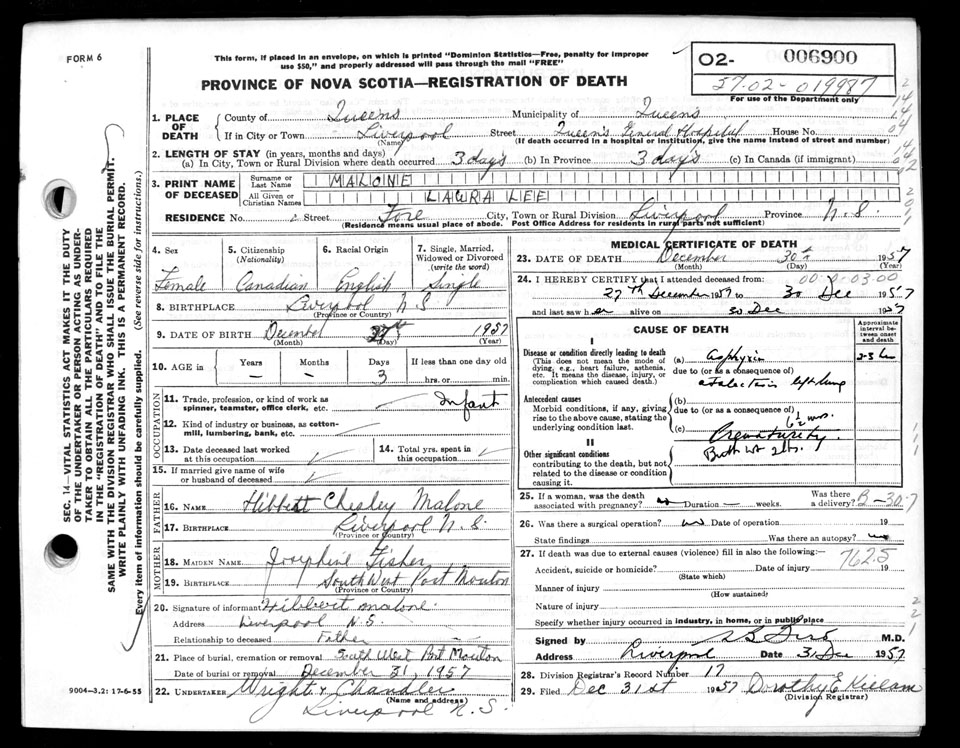 FORM 6
This form, if placed in an envelope, on which is printed "Dominion Statistics—Free, penalty for improper
use $50," and properly addressed will pass through the mail "FREE"
PROVINCE OF NOVA SCOTIA—REGISTRATION OF DEATH
02- 006900
57-02-019987
For use of the Department only
1. PLACE OF DEATH
County of Queens Municipality of Queens
If in City or Town Liverpool Street Queen's General Hospital House No.
(Name) (If death occurred in a hospital or institution, give the name instead of street and number)
2. LENGTH OF STAY (in years, months and days)
(a) In City, Town or Rural Division where death occurred 3 days (b) In Province 3 days (c) In Canada (if immigrant)
3. PRINT NAME OF DECEASED
Surname or Last Name MALONE
All Given or Christian Names LAURA LEE
RESIDENCE No. Street Fore City, Town or Rural Division Liverpool Province N.S.
(Residence means usual place of abode. Post Office Address for residents in rural parts not sufficient)
4. Sex
Female
5. Citizenship (Nationality)
Canadian
6. Racial Origin
English
7. Single, Married, Widowed or Divorced (write the word)
Single
8. BIRTHPLACE Liverpool N S
(Province or Country)
9. DATE OF BIRTH December 27th 1957
(Month) (Day) (Year)
10. AGE in
Years — Months — Days 3 If less than one day old
hrs. or min.
OCCUPATION
11. Trade, profession, or kind of work as spinner, teamster, office clerk, etc. Infant
12. Kind of industry or business, as cotton-mill, lumbering, bank, etc.
13. Date deceased last worked at this occupation
14. Total yrs. spent in this occupation
15. If married give name of wife or husband of deceased
FATHER
16. NAME Hibbert Chesley Malone
17. BIRTHPLACE Liverpool N.S.
(Province or Country)
MOTHER
18. MAIDEN NAME Josephine Fisher
19. BIRTHPLACE South West Port Mouton
(Province or Country)
20. Signature of informant Hibbert Malone
Address Liverpool N.S.
Relationship to deceased Father
21. Place of burial, cremation or removal South West Port Mouton
Date of burial or removal December 31, 1957
22. UNDERTAKER Wright & Chandler
(Name and address)
Liverpool N.S.
9004-3.2: 17-6-55
MEDICAL CERTIFICATE OF DEATH
23. DATE OF DEATH December 30th 1957
(Month) (Day) (Year)
24. I HEREBY CERTIFY that I attended deceased from
27th December 1957 to 30 Dec 1957
and last saw her alive on 30 Dec 1957
CAUSE OF DEATH
Approximate interval between onset and death
I
Disease or condition directly leading to death
(This does not mean the mode of dying, e.g., heart failure, asthenia, etc. It means the disease, injury, or complication which caused death.)
(a) Asphyxia
due to (or as a consequence of)
Antecedent causes
Morbid conditions, if any, giving rise to the above cause, stating the underlying condition last.
(b)
due to (or as a consequence of)
6½ mos.
(c) Prematurity.
II
Other significant conditions
contributing to the death, but not related to the disease or condition causing it.
Birth wt 2 lbs.
25. If a woman, was the death associated with pregnancy? no Duration — weeks. Was there a delivery?
26. Was there a surgical operation? no Date of operation 19
State findings Was there an autopsy? no
27. If death was due to external causes (violence) fill in also the following:—
7625
Accident, suicide or homicide? Date of injury 19
(State which)
Manner of injury
(How sustained)
Nature of injury
Specify whether injury occurred in industry, in home, or in public place
Signed by M.D.
Address Liverpool Date 31 Dec 1957
28. Division Registrar's Record Number 17
29. Filed Dec 31st 1957 Dorothy E Killam
(Division Registrar)
SEC. 14—VITAL STATISTICS ACT MAKES IT THE DUTY
OF THE UNDERTAKER OR PERSON ACTING AS UNDER-
TAKER TO OBTAIN ALL THE PARTICULARS REQUIRED
IN THE "REGISTRATION OF DEATH" AND TO FILE THE
SAME WITH THE DIVISION REGISTRAR WHO SHALL ISSUE THE BURIAL PERMIT.
WRITE PLAINLY WITH UNFADING INK. THIS IS A PERMANENT RECORD.
Every item of information should be carefully supplied. (See reverse side for instructions.)